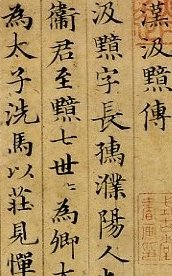 漢汲黯傳
汲黯字長孺濮陽人
衛君至黯七世〻為卿
為太子洗馬以莊見憚